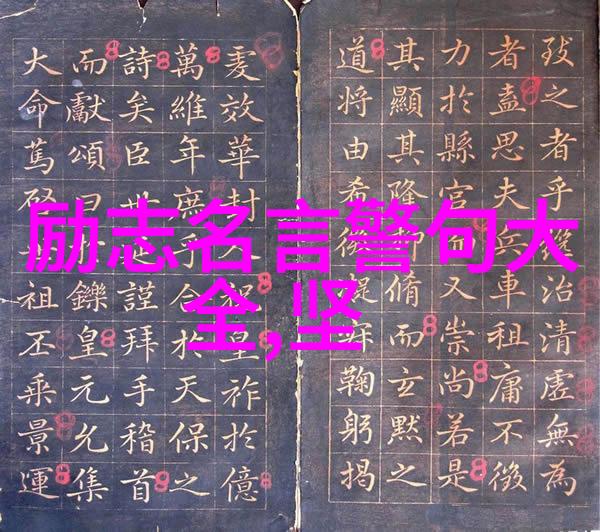 励志名言警句大
全,坚
之者乎治清虛無為
者盍思夫兵車租庸不徵
力於縣官而又崇尚若是
其顯其隆抑脩而玄默之
道將由希鞠躬揭
虔效華封皇祚於億
萬維年庶乎合於天保之
詩矣臣謹拜手稽首
而獻頌曰鑠皇元允集
大命篤祖丕乘景運